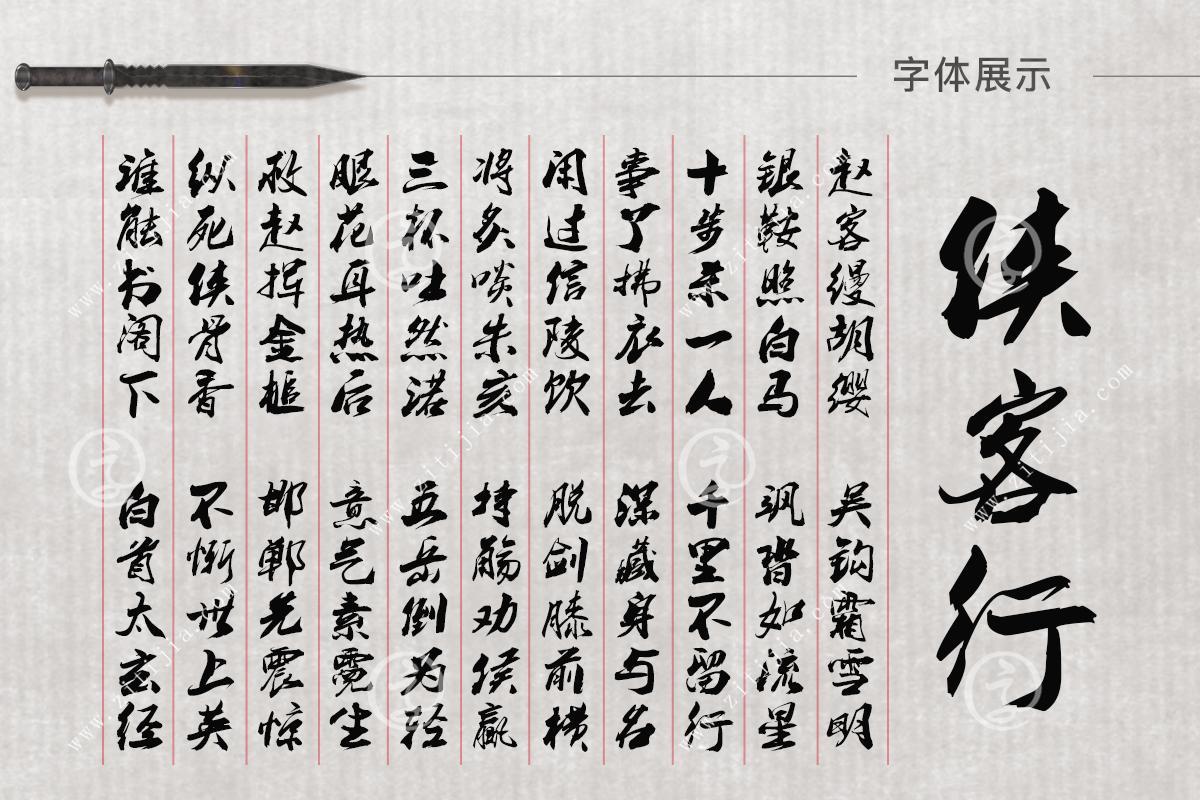 字体展示
侠客行
赵客缦胡缨 吴钩霜雪明
银鞍照白马 飒沓如流星
十步杀一人 千里不留行
事了拂衣去 深藏身与名
闲过信陵饮 脱剑膝前横
将炙啖朱亥 持觞劝侯嬴
三杯吐然诺 五岳倒为轻
眼花耳热后 意气素霓生
救赵挥金槌 邯郸先震惊
纵死侠骨香 不惭世上英
谁能书阁下 白首太玄经
www.zitijia.com